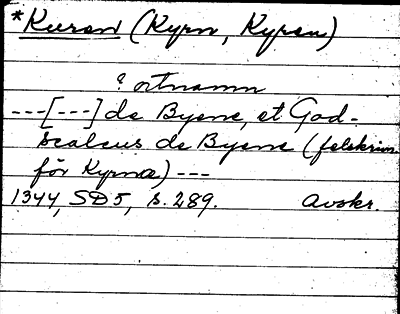 *Kuren (Kyrn, Kyren)
? ortnamn
---[---] de Byrne, et God-
scalcus de Byrne (felskrivn
för Kyrnæ) ---
1344, SD5, s. 289. Avskr.